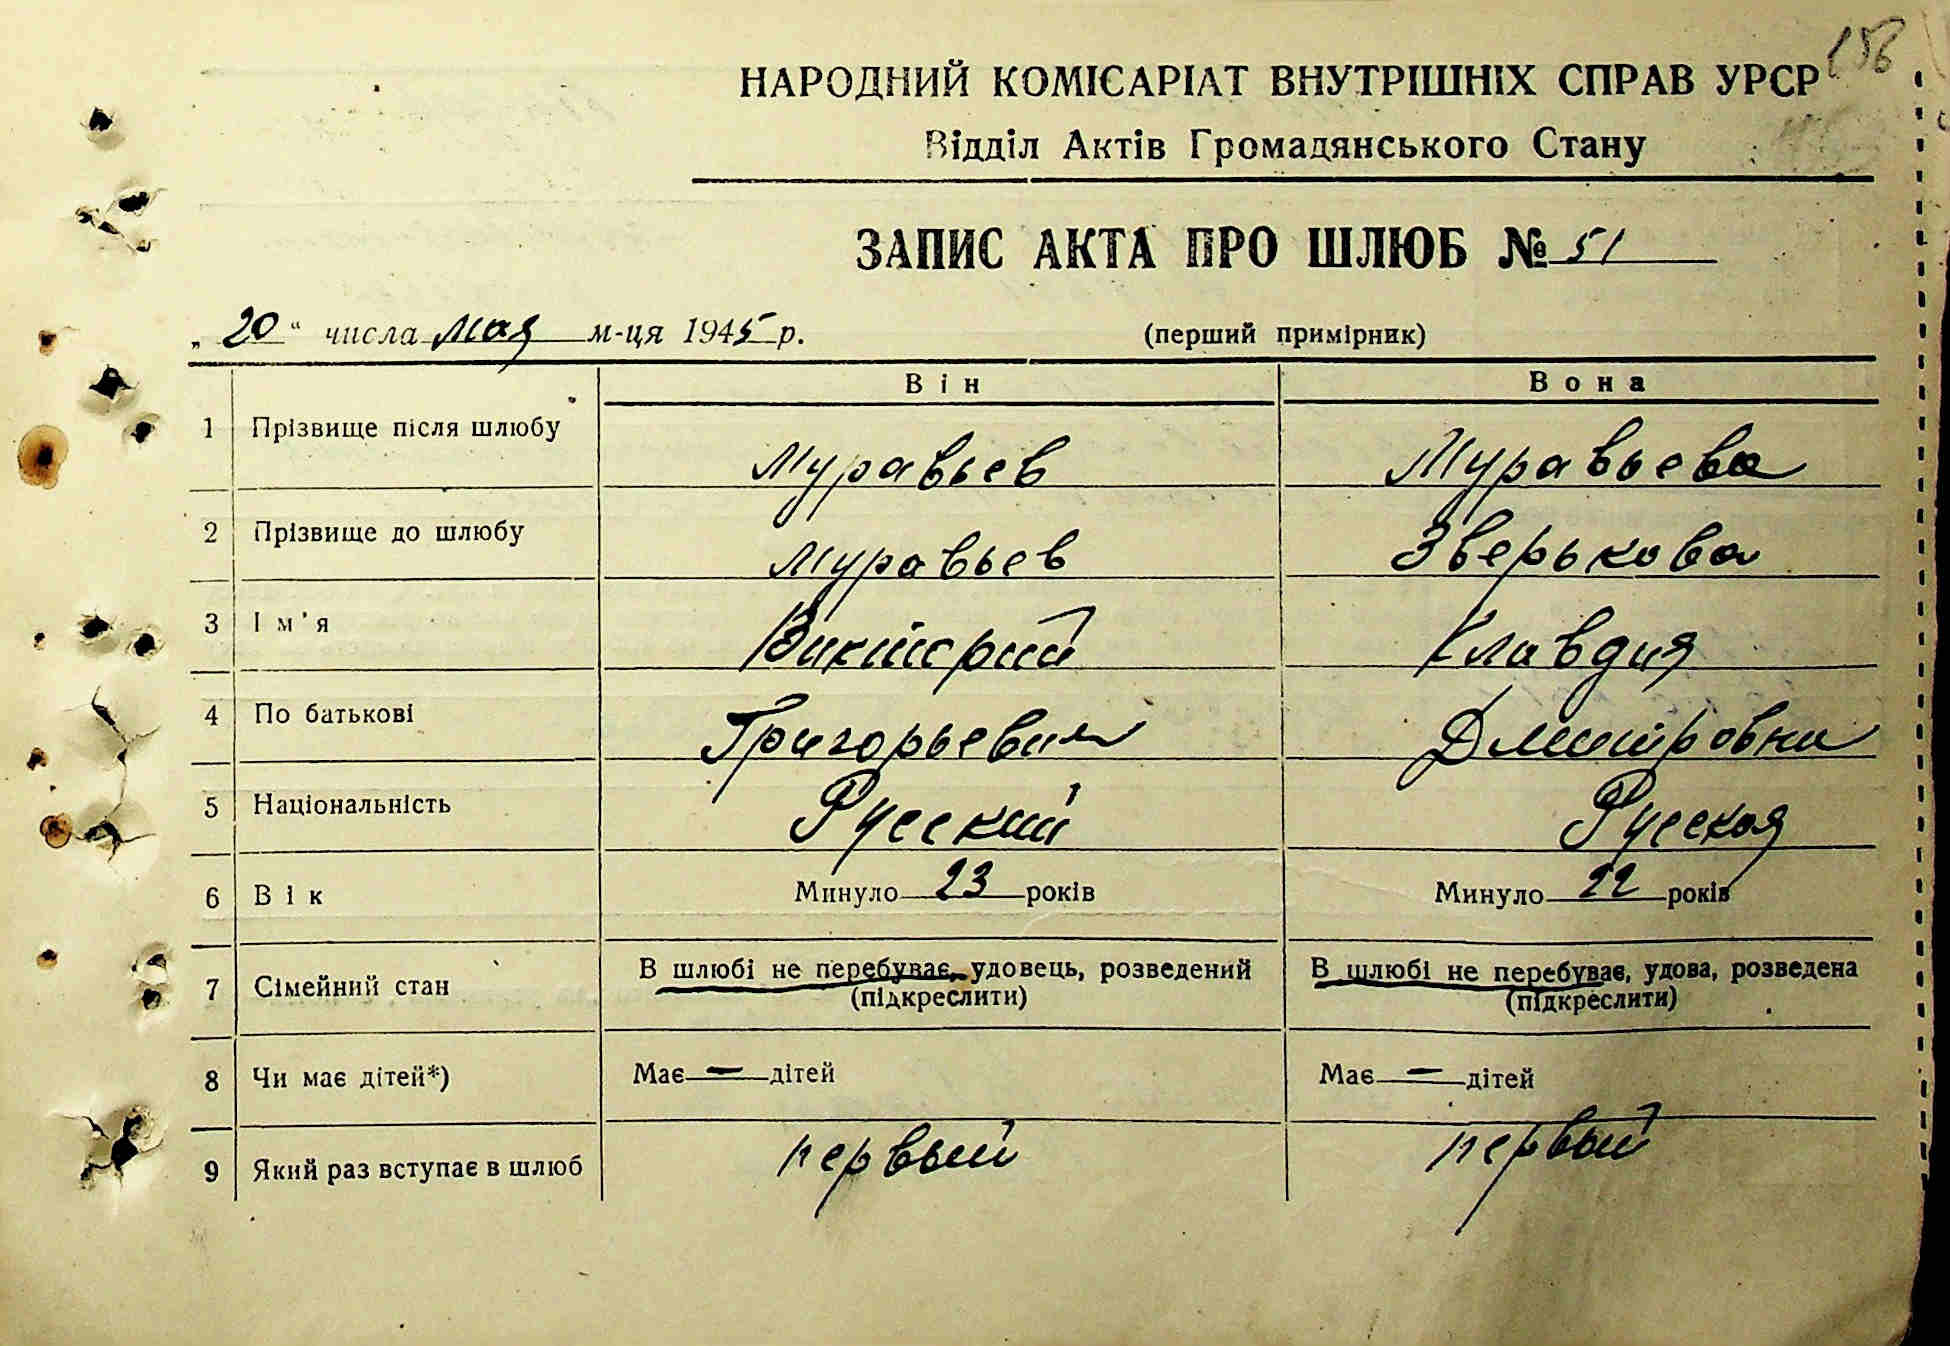 156
НАРОДНИЙ КОМІСАРІАТ ВНУТРІШНІХ СПРАВ УРСР
Відділ Актів Громадянського Стану
ЗАПИС АКТА ПРО ШЛЮБ № 51
„20“ числа мая м-ця 1945 р. (перший примірник)
Він Вона
1 Прізвище після шлюбу Муравьев Муравьева
2 Прізвище до шлюбу Муравьев Зверькова
3 Ім'я Викторий Клавдия
4 По батькові Григорьевич Дмитровна
5 Національність Русский Русская
6 Вік Минуло 23 років Минуло 22 років
7 Сімейний стан В шлюбі не перебуває, удовець, розведений В шлюбі не перебуває, удова, розведена
(підкреслити) (підкреслити)
8 Чи має дітей*) Має — дітей Має — дітей
9 Який раз вступає в шлюб первый первый